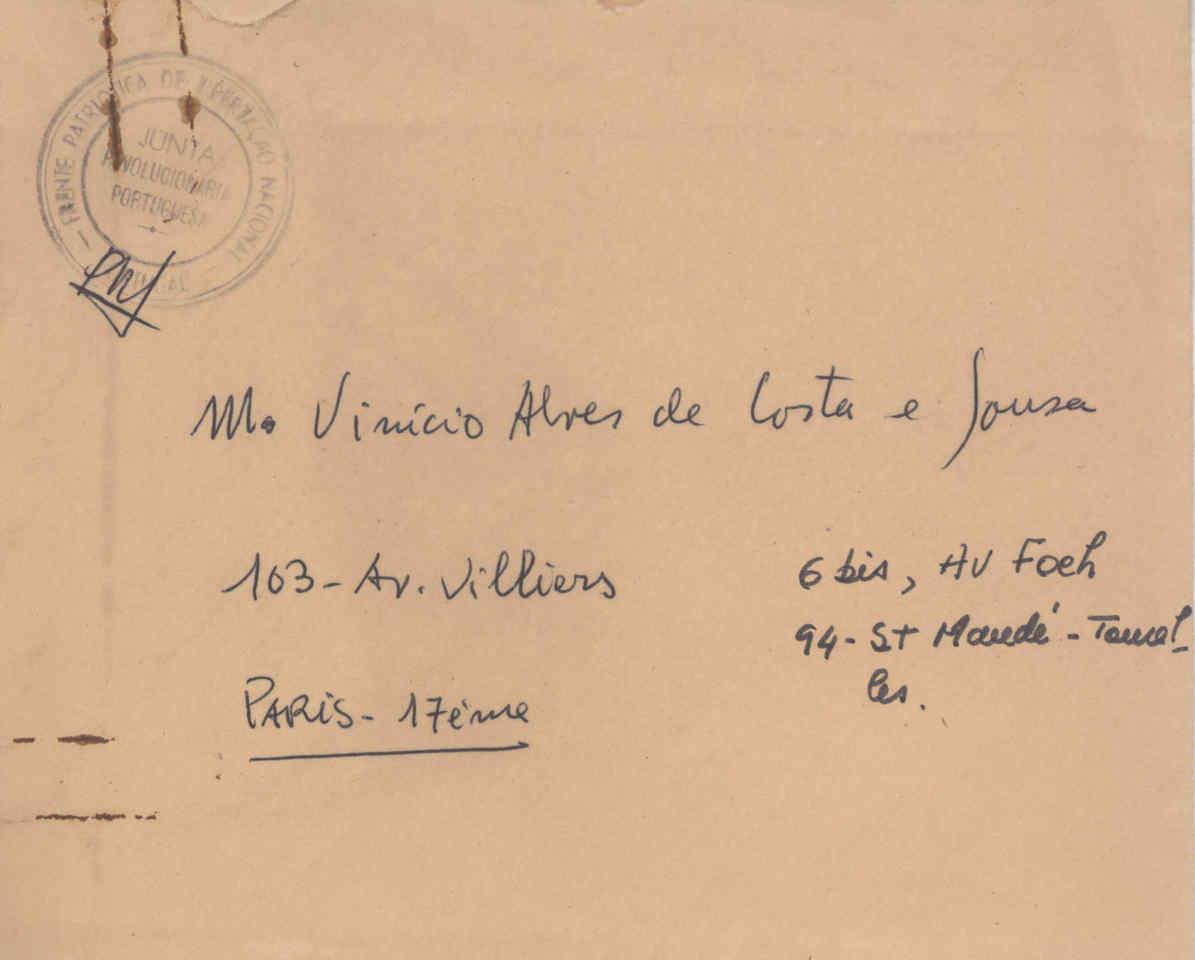 — FRENTE PATRIOTICA DE LIBERTAÇÃO NACIONAL —
JUNTA
REVOLUCIONARIA
PORTUGUESA
Mr Vinício Alves de Costa e Sousa
103 - Av. Villiers
PARIS - 17ème
6 bis, AV Foch
94 - St Mandé - Tourel-
les.